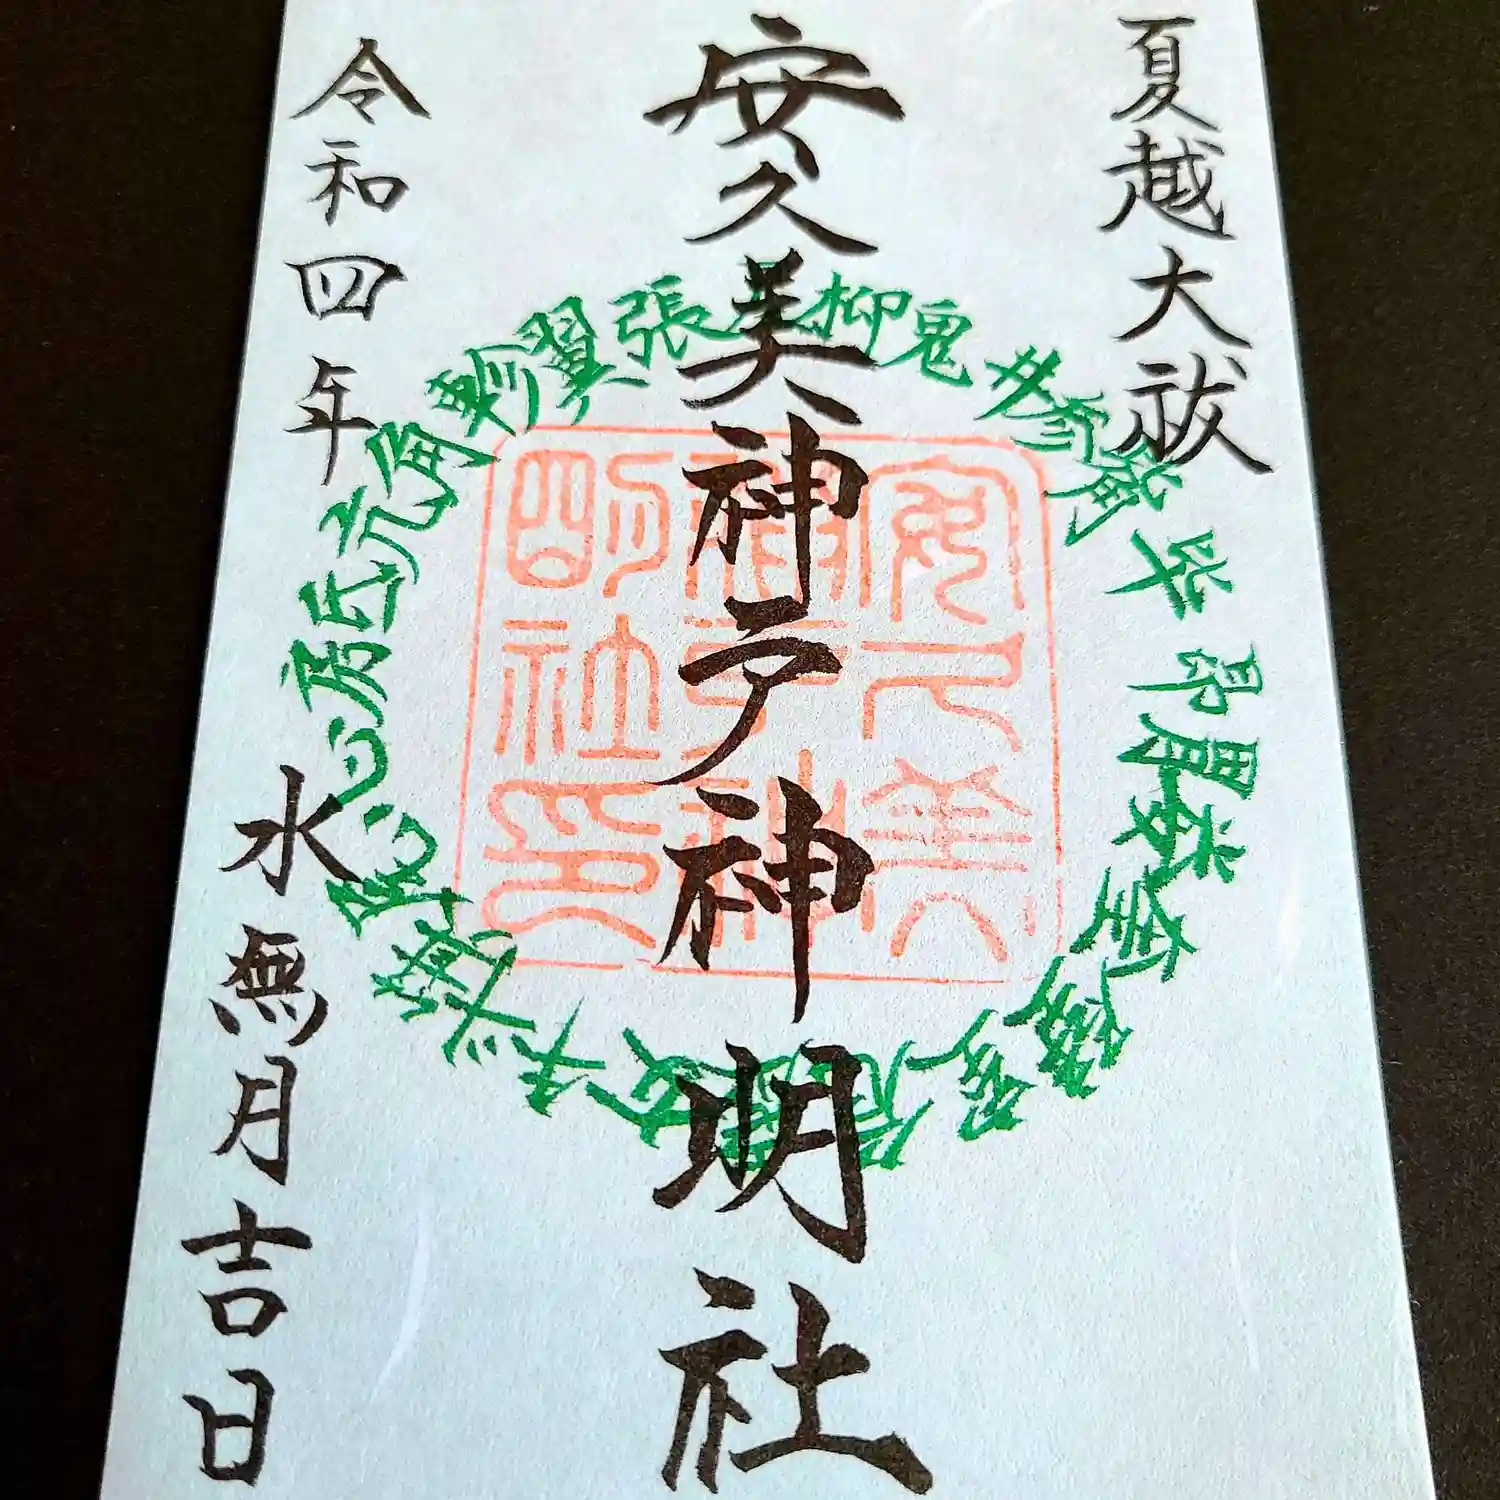 夏越大祓
安久美神戸神明社
令和四年
水無月吉日
角亢氐房心尾箕斗牛女虚危室壁奎婁胃昴畢觜参井鬼柳星張翼軫
安久美
神戸神
明社印